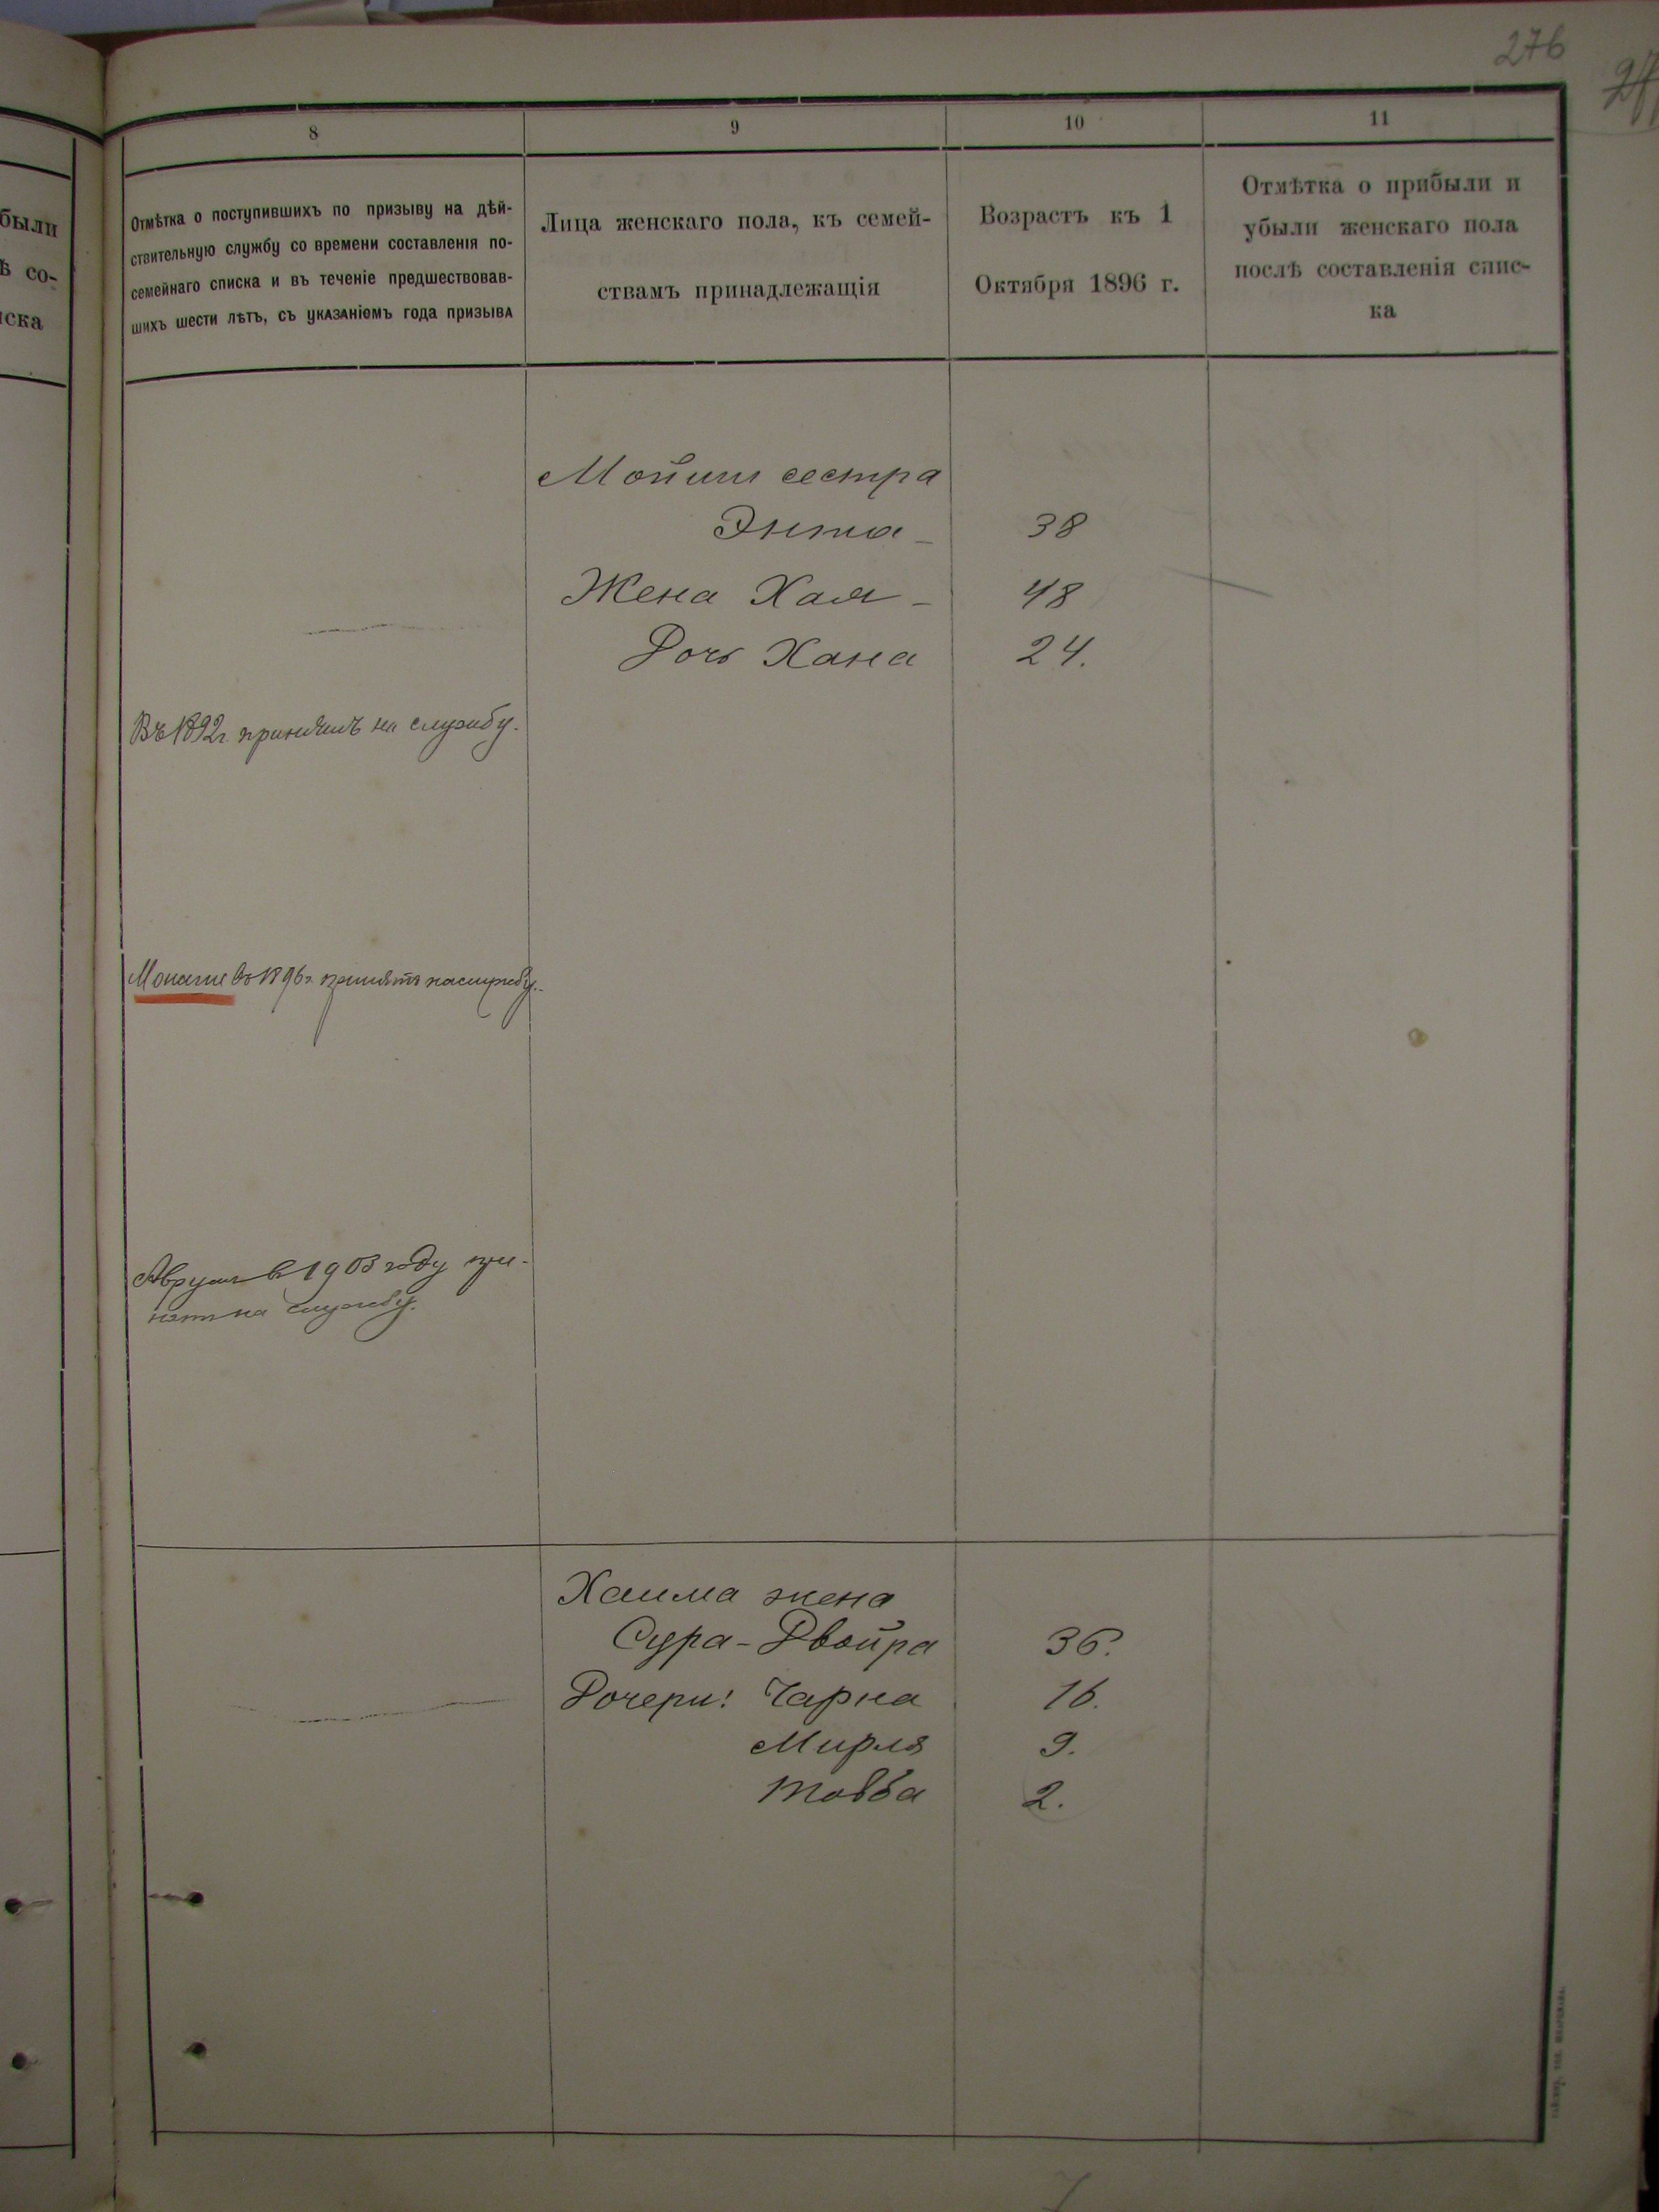 276
8
9
10
11
Отмѣтка о поступившихъ по призыву на дѣй-
ствительную службу со времени составленія по-
семейнаго списка и въ теченіе предшествовав-
шихъ шести лѣтъ, съ указаніемъ года призыва
Лица женскаго пола, къ семей-
ствамъ принадлежащія
Возрастъ къ 1
Октября 1896 г.
Отмѣтка о прибыли и
убыли женскаго пола
послѣ составленія спис-
ка
были
ѣ со-
иска
Мойши сестра
Энта - 38
Жена Хая - 48
Дочь Хана 24.
Въ 1892 г. принятъ на службу.
въ 1896 г. принятъ на службу.
Аврум в 1903 году при-
нят на службу.
Хаима жена
Сура-Двойра 36.
Дочери: Чарна 16.
Мирля 9.
Товба 2.